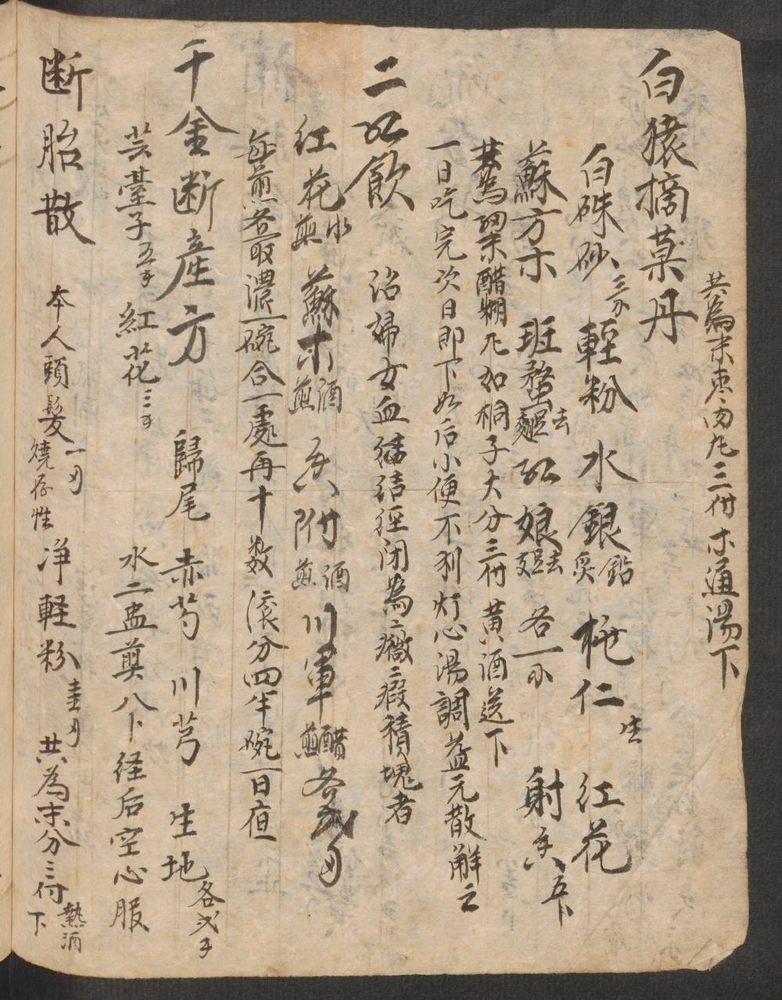 共為末棗肉丸三付木通湯下
白猿摘菓丹
白硃砂三分 輕粉 水銀鉛炙 桃仁生 红花
蘇方木 班蝥去翅 红娘去足 各一分 射香五卜
共為細末醋糊丸如桐子大分三付黄酒送下
一日吃完次日即下如后小便不利灯心湯調益元散觧之
二红飲 治婦女血結徑闭為癥瘕積塊者
红花水煎 蘇木酒煎 香附酒煎 川軍醋煎 各弍
每煎各取濃一碗合一處再十数滚分四半碗一日
千金断産方 歸尾 赤芍 川芎 生地各弐
芸薹子五 紅花三 水二盅煎八卜経后空心服
断胎散 本人頭髮一燒存性 净軽粉 共為末分三付熱酒下